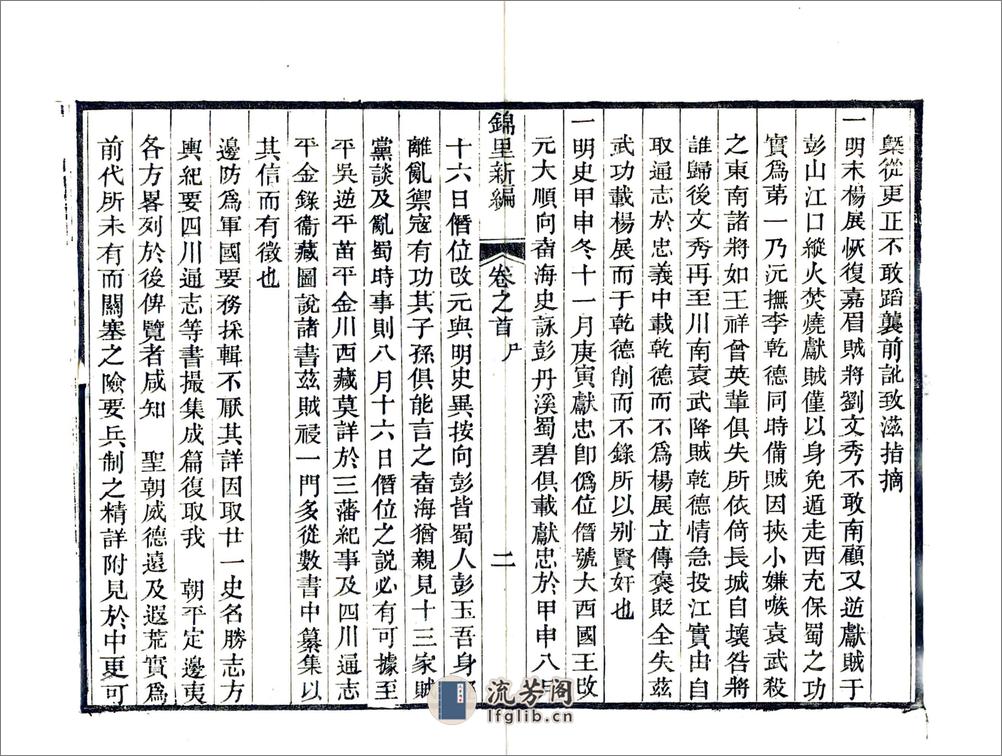 槩從更正不敢蹈襲前訛致滋指摘
一明末楊展恢復嘉眉賊將劉文秀不敢南顧又逆獻賊于
彭山江口縱火焚燒獻賊僅以身免遁走西充保蜀之功
實爲第一乃沅撫李乾德同時備賊因挾小嫌嗾袁武殺
之東南諸將如王祥曾英輩俱失所依倚長城自壞咎將
誰歸後文秀再至川南袁武降賊乾德情急投江實由自
取通志於忠義中載乾德而不爲楊展立傳褒貶全失茲
武功載楊展而于乾德削而不錄所以别賢奸也
一明史甲申冬十一月庚寅獻忠卽僞位僭號大西國王改
元大順向畬海史詠彭丹溪蜀碧俱載獻忠於甲申八月
錦里新編 卷之首 二
十六日僭位改元與明史異按向彭皆蜀人彭玉吾身
離亂禦寇有功其子孫俱能言之畬海猶親見十三家賊
黨談及亂蜀時事則八月十六日僭位之説必有可據至
平吳逆平苗平金川西藏莫詳於三藩紀事及四川通志
平金錄衞藏圖說諸書茲賊祲一門多從數書中纂集以
其信而有徵也
邊防爲軍國要務採輯不厭其詳因取廿一史名勝志方
輿紀要四川通志等書撮集成篇復取我 朝平定邊夷
各方畧列於後俾覽者咸知 聖朝威德遠及遐荒實爲
前代所未有而關塞之險要兵制之精詳附見於中更可
流芳阁
lfglib.cn